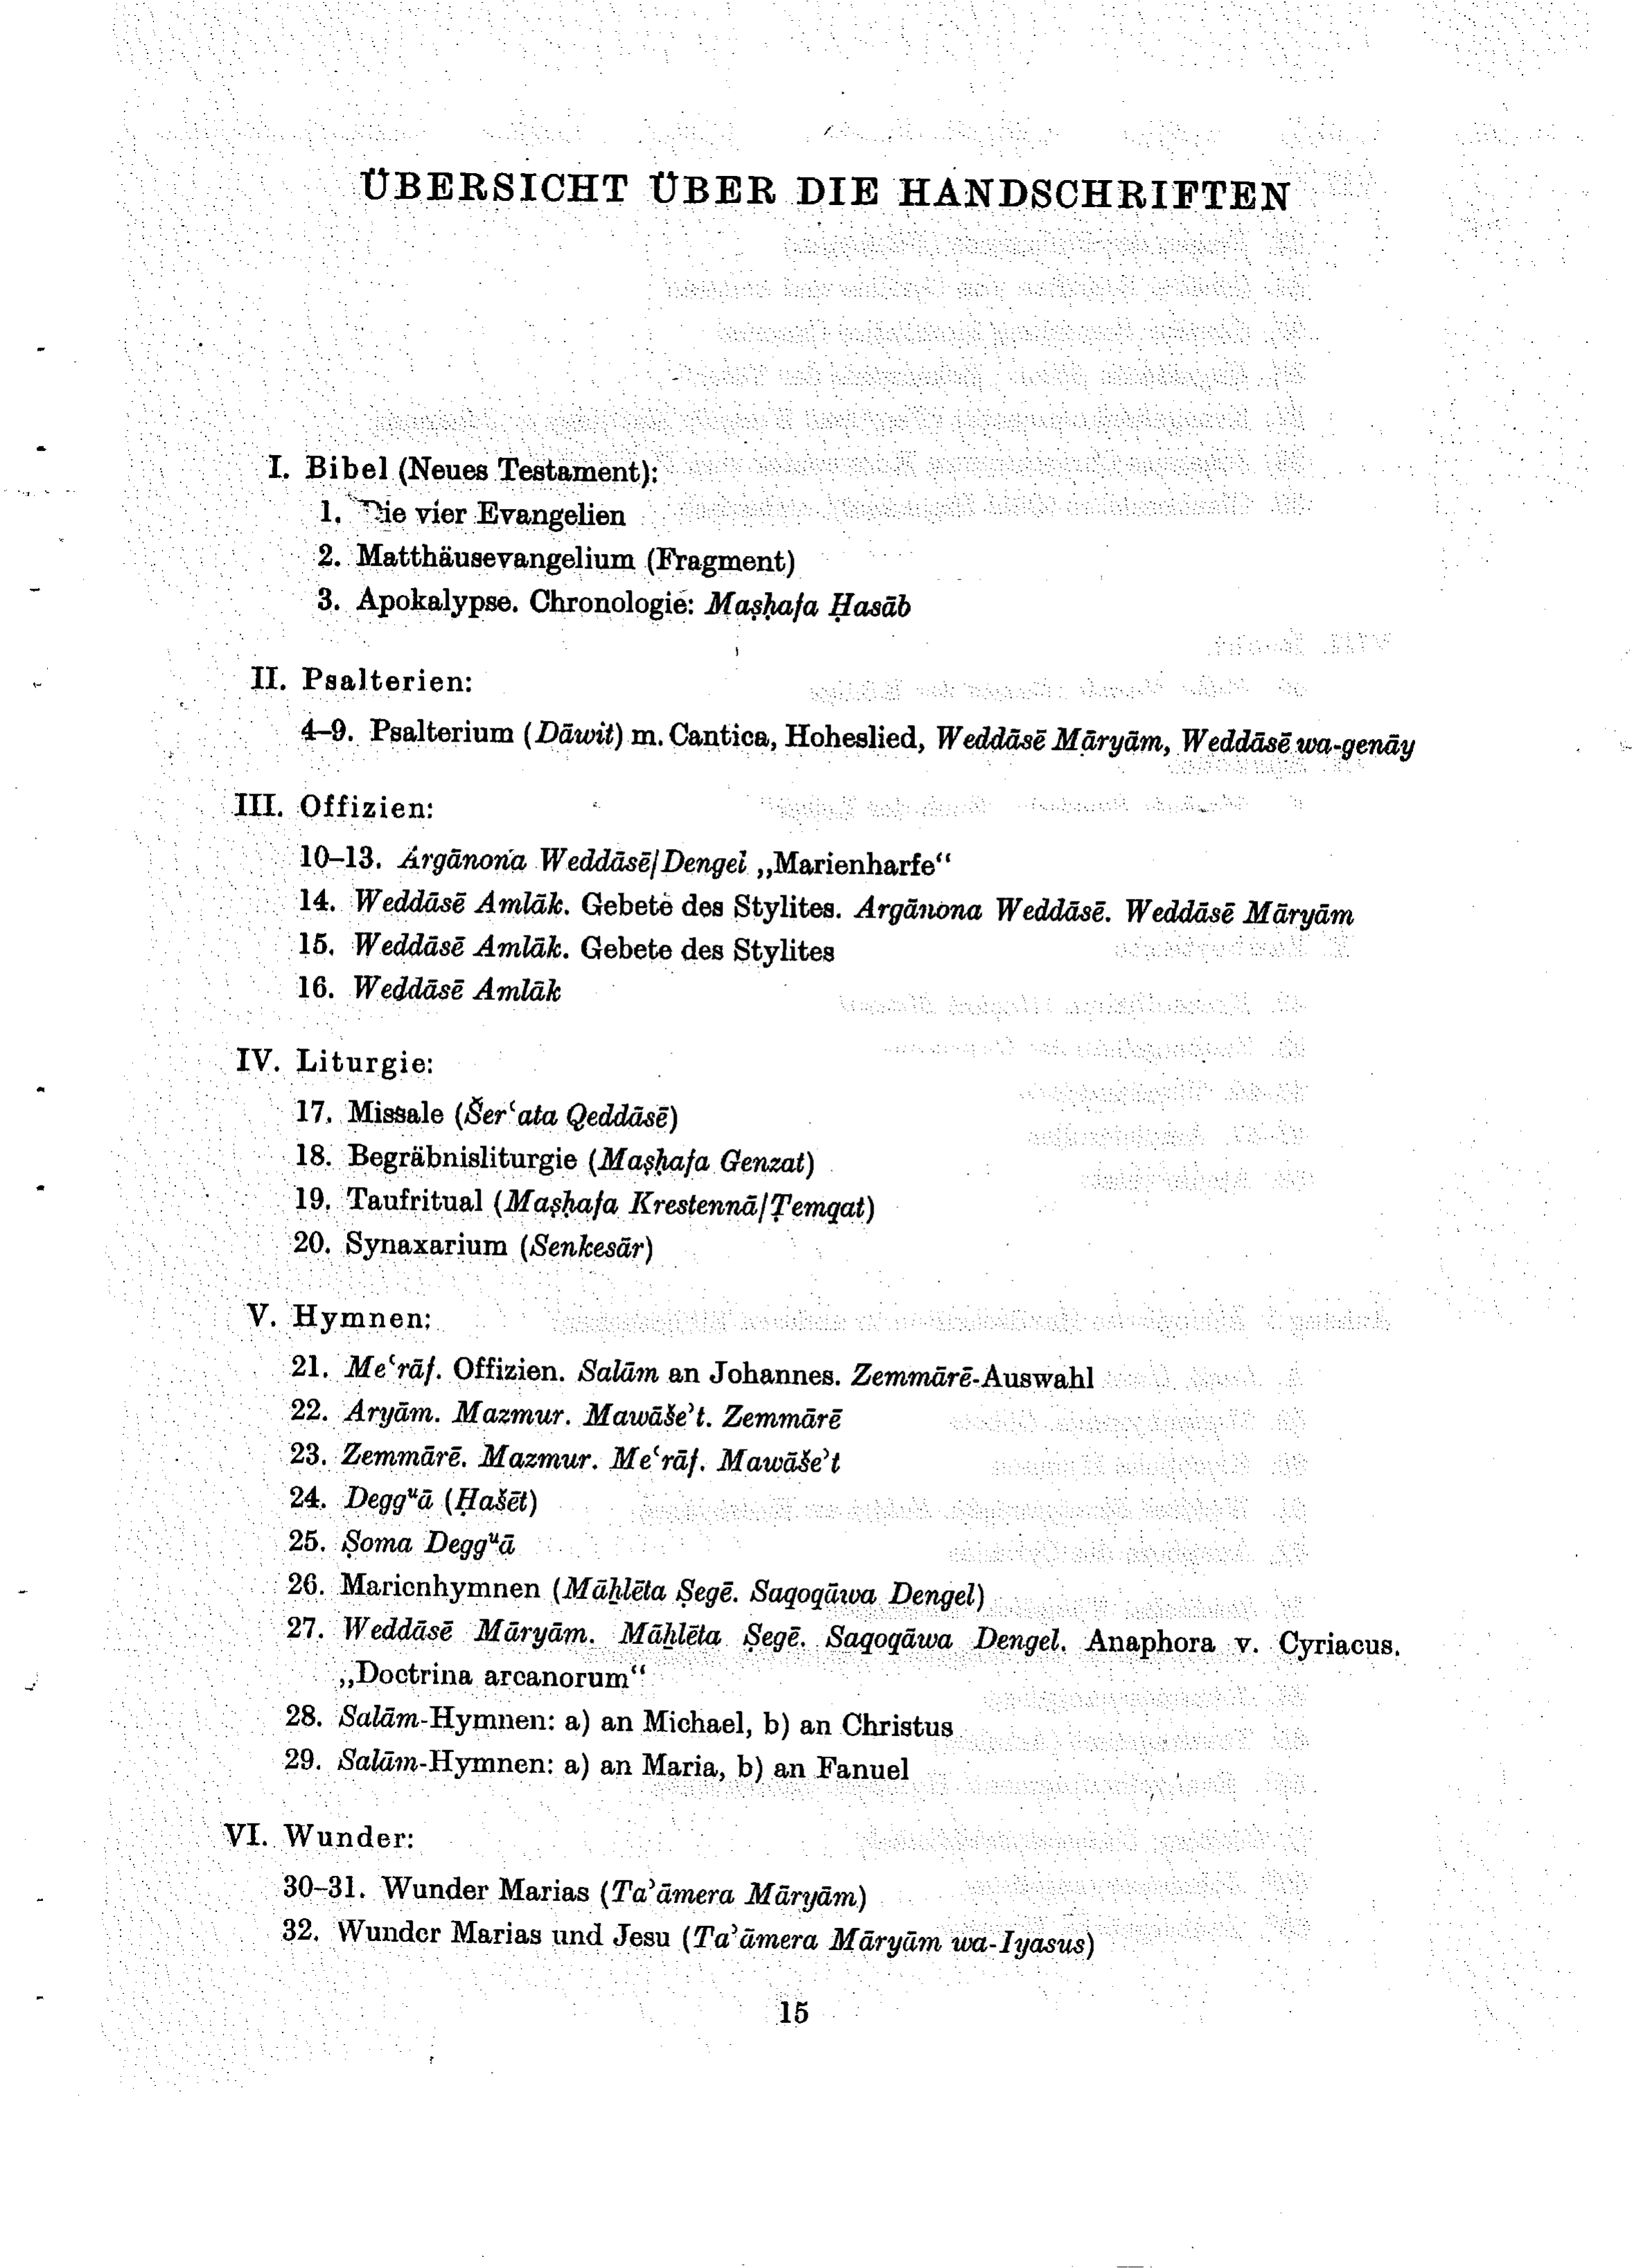 ÜBERSICHT ÜBER DIE HANDSCHRIFTEN
I. Bibel (Neues Testament):
1. Die vier Evangelien
2. Matthäusevangelium (Fragment)
3. Apokalypse. Chronologie: Maṣḥafa Ḥasāb
II. Psalterien:
4–9. Psalterium (Dāwit) m. Cantica, Hoheslied, Weddāsē Māryām, Weddāsē wa-genāy
III. Offizien:
10–13. Argānona Weddāsē/Dengel „Marienharfe“
14. Weddāsē Amlāk. Gebete des Stylites. Argānona Weddāsē. Weddāsē Māryām
15. Weddāsē Amlāk. Gebete des Stylites
16. Weddāsē Amlāk
IV. Liturgie:
17. Missale (Šerʿata Qeddāsē)
18. Begräbnisliturgie (Maṣḥafa Genzat)
19. Taufritual (Maṣḥafa Krestennā/Ṭemqat)
20. Synaxarium (Senkesār)
V. Hymnen:
21. Meʿrāf. Offizien. Salām an Johannes. Zemmārē-Auswahl
22. Aryām. Mazmur. Mawāšeʾt. Zemmārē
23. Zemmārē. Mazmur. Meʿrāf. Mawāšeʾt
24. Deggᵘā (Ḥašēt)
25. Ṣoma Deggᵘā
26. Marienhymnen (Māḫlēta Ṣegē. Saqoqāwa Dengel)
27. Weddāsē Māryām. Māḫlēta Ṣegē. Saqoqāwa Dengel. Anaphora v. Cyriacus.
„Doctrina arcanorum“
28. Salām-Hymnen: a) an Michael, b) an Christus
29. Salām-Hymnen: a) an Maria, b) an Fanuel
VI. Wunder:
30–31. Wunder Marias (Taʾāmera Māryām)
32. Wunder Marias und Jesu (Taʾāmera Māryām wa-Iyasus)
15